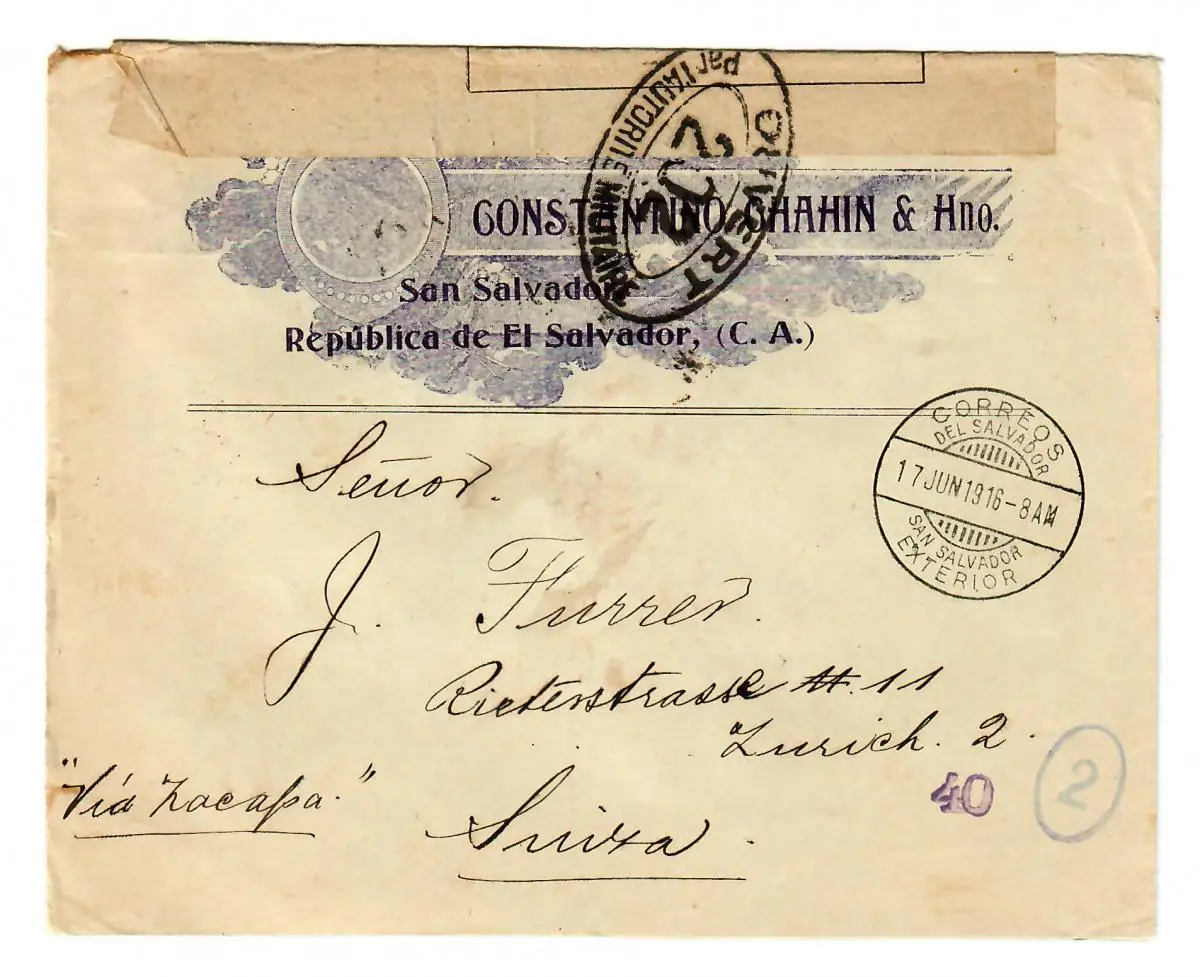 OUVERT
par l'AUTORITÉ MILITAIRE
CONSTANTINO CHAHIN & Hno.
San Salvador
República de El Salvador, (C. A.)
CORREOS
DEL SALVADOR
17 JUN 1916-8AM
SAN SALVADOR
EXTERIOR
Señor.
J. Furrer.
Rieterstrasse #. 11
Zurich. 2.
"Vía Zacapa."
Suiza.
40
2